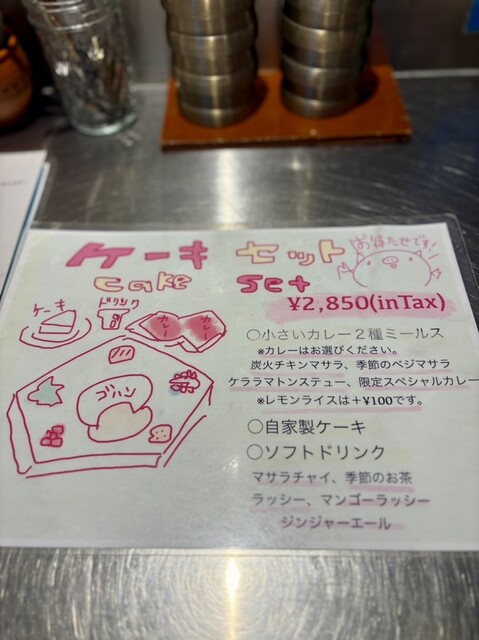 ケーキ セット
cake set
お待たせです!
¥2,850(inTax)
ケーキ
ドリンク
カレー
カレー
ゴハン
○小さいカレー2種ミールス
※カレーはお選びください。
炭火チキンマサラ、季節のベジマサラ
ケララマトンステュー、限定スペシャルカレー
※レモンライスは+¥100です。
○自家製ケーキ
○ソフトドリンク
マサラチャイ、季節のお茶
ラッシー、マンゴーラッシー
ジンジャーエール